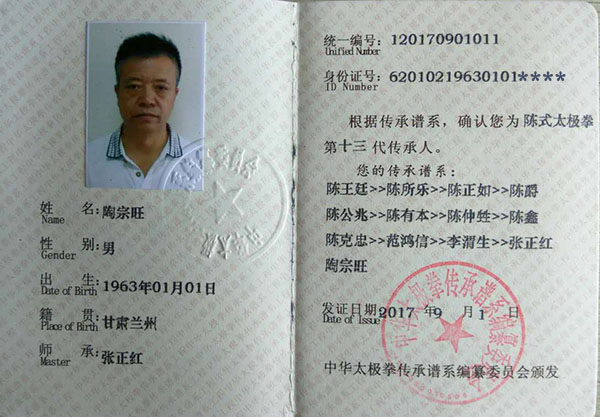 姓 名:陶宗旺
Name
性 别:男
Gender
出 生:1963年01月01日
Date of Birth
籍 贯:甘肃兰州
Place of Birth
师 承:张正红
Master
统一编号:120170901011
Unified Number
身份证号:62010219630101****
ID Number
根据传承谱系，确认您为陈式太极拳
第十三代传承人。
您的传承谱系:
陈王廷>>陈所乐>>陈正如>>陈爵
陈公兆>>陈有本>>陈仲甡>>陈鑫
陈克忠>>范鸿信>>李渭生>>张正红
陶宗旺
发证日期:2017年9月1日
Date of Issue
中华太极拳传承谱系编纂委员会颁发
中华太极拳传承谱系编纂委员会